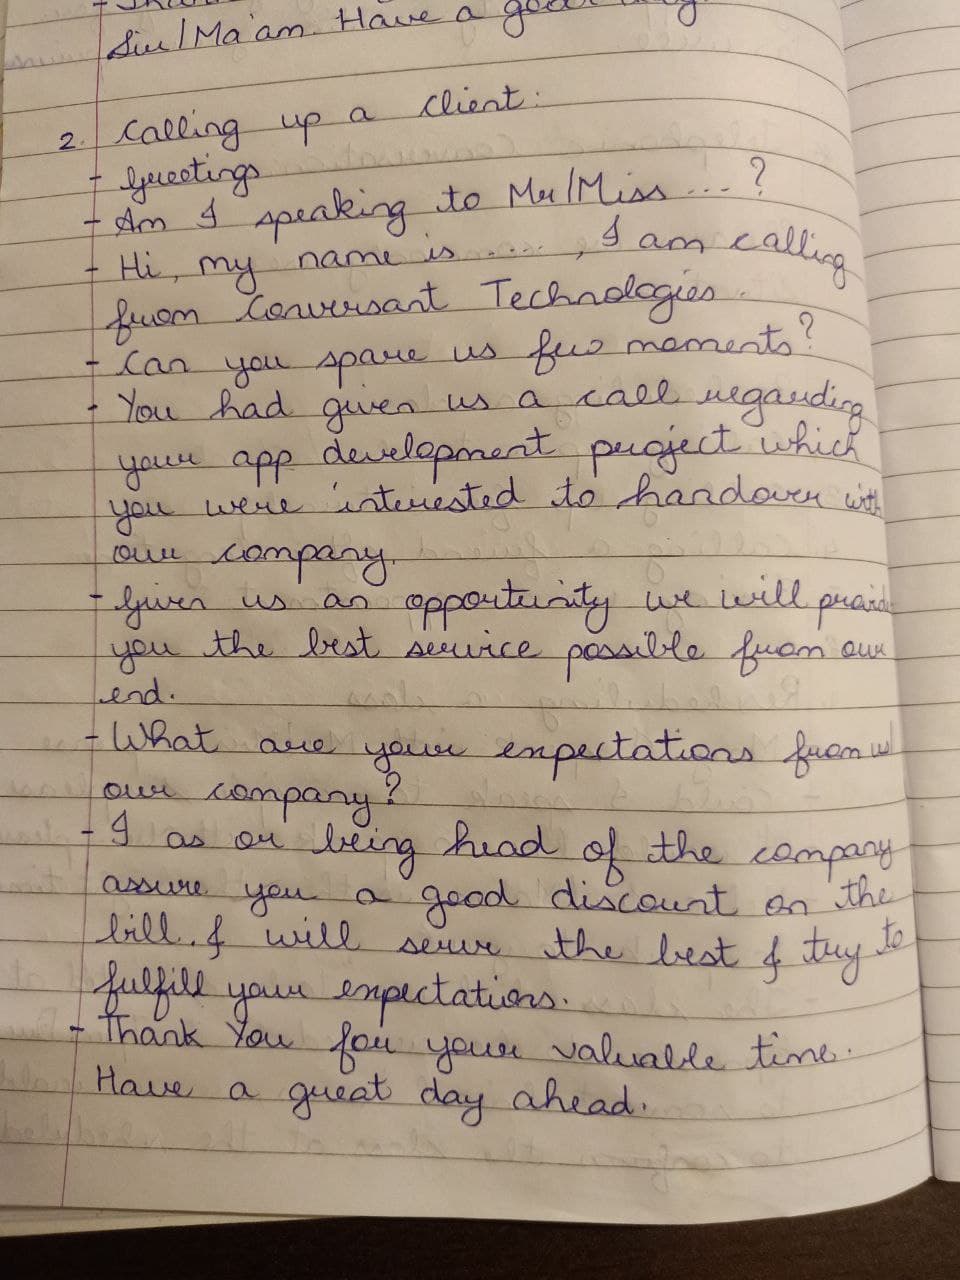 Sir/Ma'am. Have a good
2. Calling up a client:
- Greetings
- Am I speaking to Mr/Miss ...?
- Hi, my name is ...., I am calling
from Conversant Technologies.
- Can you spare us few moments?
- You had given us a call regarding
your app development project which
you were interested to handover with
our company.
- Given us an opportunity we will provide
you the best service possible from our
end.
- What are your expectations from us
our company?
- I as or being head of the company
assure you a good discount on the
bill. & will serve the best & try to
fulfill your expectations.
- Thank You for your valuable time.
Have a great day ahead.